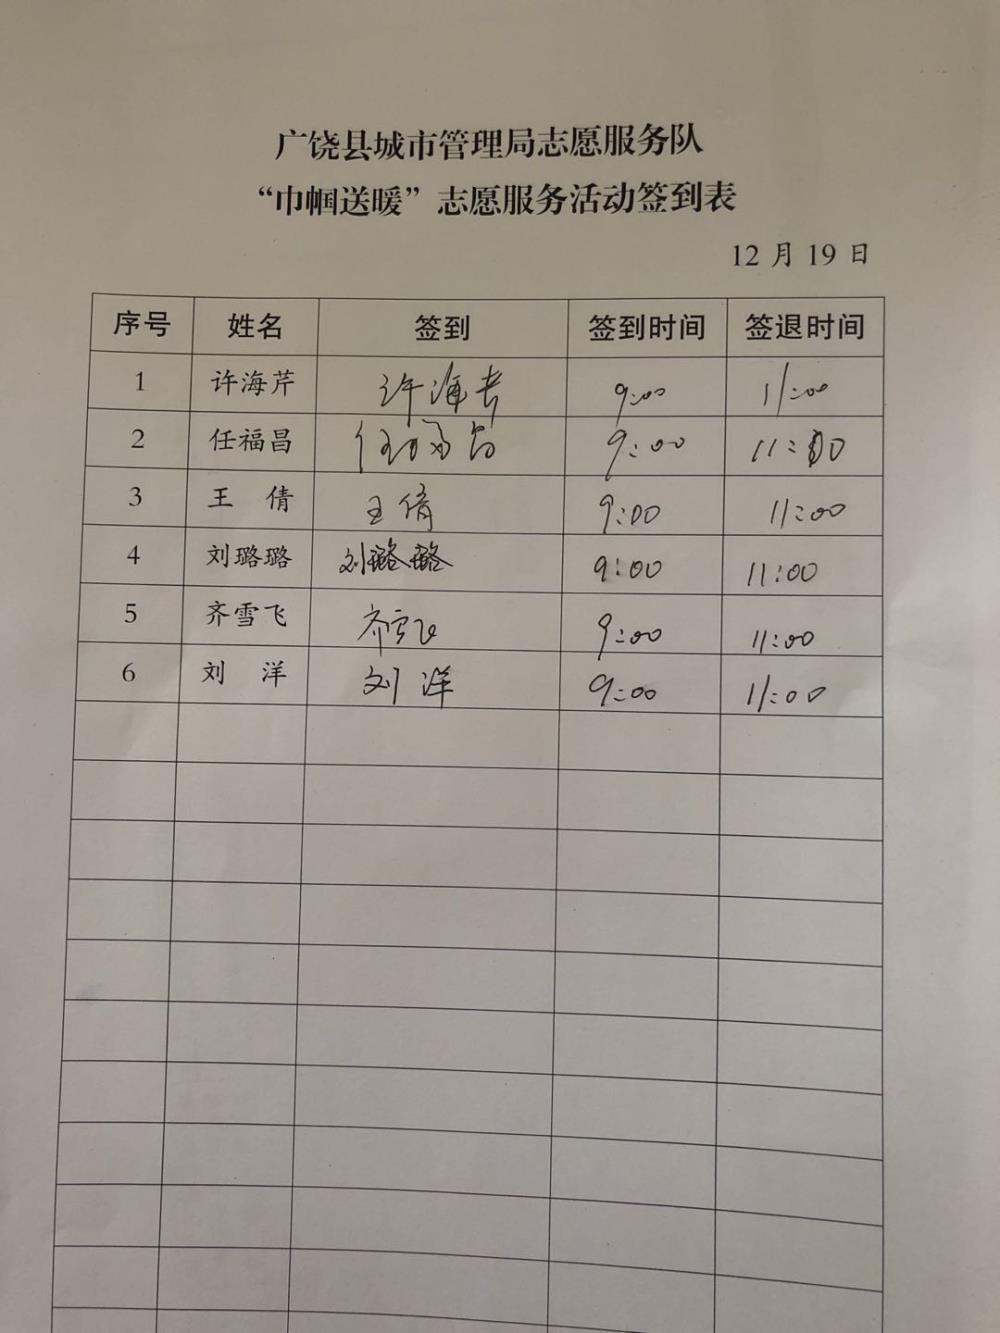 广饶县城市管理局志愿服务队
“巾帼送暖”志愿服务活动签到表
12 月 19 日
序号 姓名 签到 签到时间 签退时间
1 许海芹 许海芹 9:00 11:00
2 任福昌 任福昌 9:00 11:00
3 王 倩 王倩 9:00 11:00
4 刘璐璐 刘璐璐 9:00 11:00
5 齐雪飞 齐雪飞 9:00 11:00
6 刘 洋 刘洋 9:00 11:00